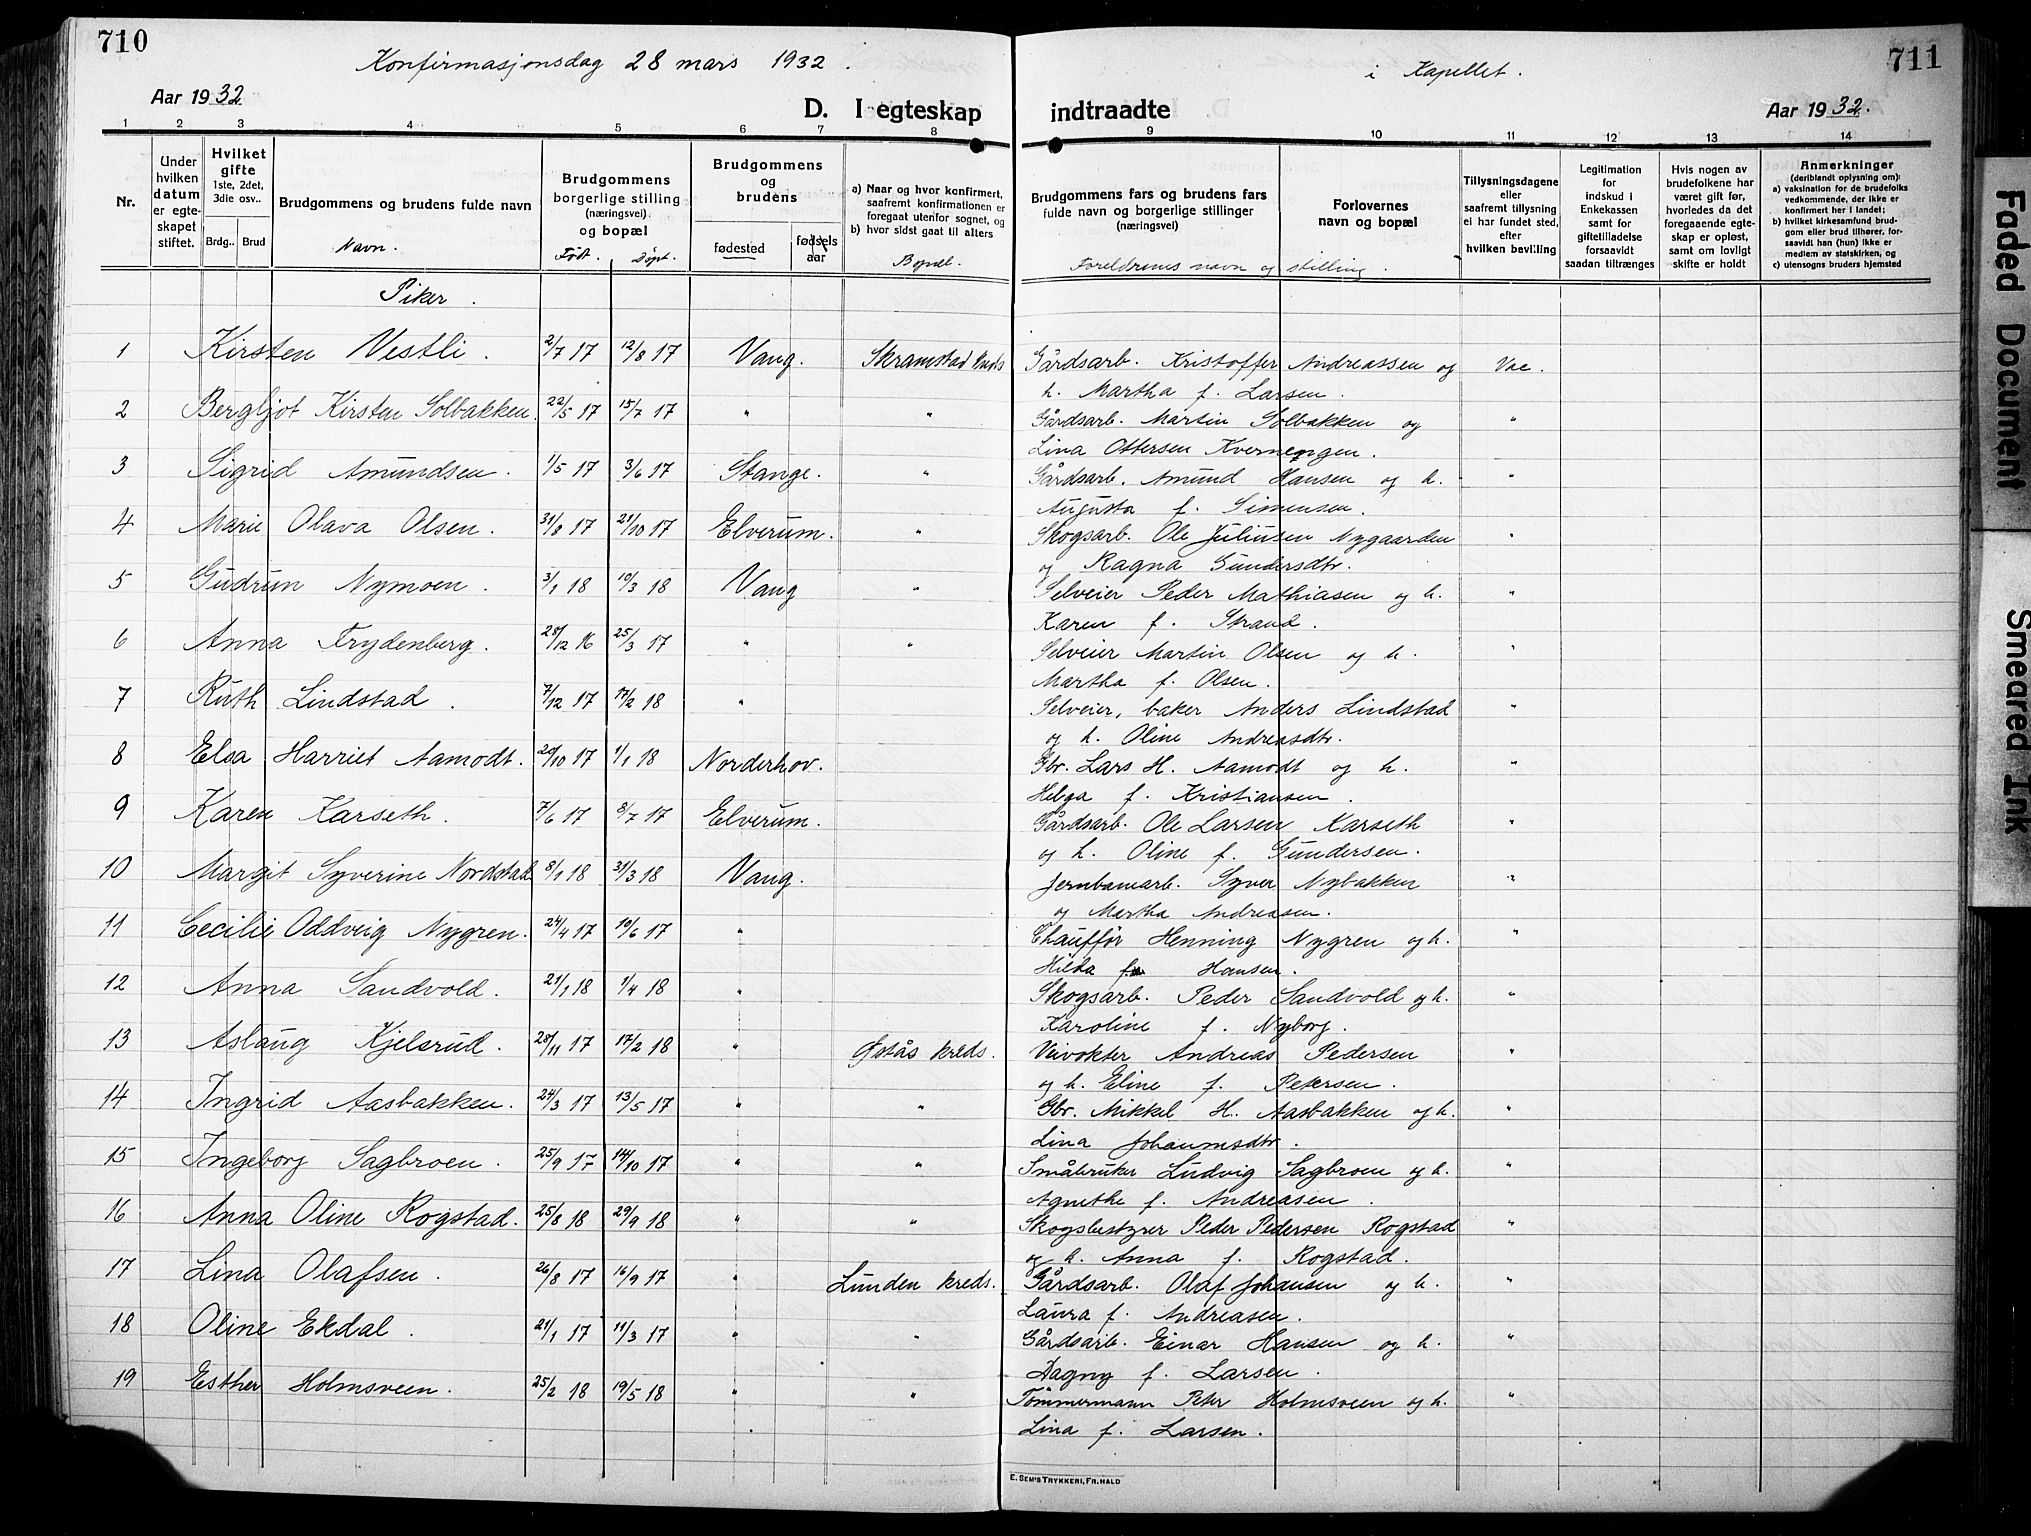 710
711
Konfirmasjonsdag 28 mars 1932.
i Kapellet.
Aar 1932
D. I egteskap indtraadte
Aar 1932.
1 2 3 4 5 6 7 8 9 10 11 12 13 14
Nr.
Under hvilken datum er egteskapet stiftet.
Hvilket gifte 1ste, 2det, 3die osv..
Brdg.. Brud
Brudgommens og brudens fulde navn
Navn.
Brudgommens borgerlige stilling (næringsvei) og bopæl
Født. Døpt.
Brudgommens og brudens
fødested
fødsels aar
a) Naar og hvor konfirmert, saafremt konfirmationen er foregaat utenfor sognet, og
b) hvor sidst gaat til alters
Bopæl.
Brudgommens fars og brudens fars fulde navn og borgerlige stillinger (næringsvei)
Foreldrenes navn og stilling.
Forlovernes navn og bopæl
Tillysningsdagene eller saafremt tillysning ei har fundet sted, efter hvilken bevilling
Legitimation for indskud i Enkekassen samt for giftetilladelse forsaavidt saadan tiltrænges
Hvis nogen av brudefolkene har været gift før, hvorledes da det foregaaende egteskap er opløst, samt om lovligt skifte er holdt
Anmerkninger (deriblandt oplysning om):
a) vaksination for de brudefolks vedkommende, der ikke er konfirmert her i landet;
b) hvilket kirkesamfund brudgom eller brud tilhører, forsaavidt han (hun) ikke er medlem av statskirken, og
c) utensogns bruders hjemsted
Piker.
1 Kirsten Vestli. 2/7 17 12/8 17 Vang. Skramstad kreds Gårdsarb. Kristoffer Andreassen og Vac.
h. Martha f. Larsen.
2 Bergljot Kirsten Solbakken. 22/5 17 15/7 17 " " Gårdsarb. Martin Solbakken og "
Lina Ottersen Kvernengen.
3 Sigrid Amundsen. 1/5 17 3/6 17 Stange. " Gårdsarb. Amund Hansen og h. "
Augusta f. Simensen.
4 Marie Olava Olsen. 31/8 17 21/10 17 Elverum. " Skogsarb. Ole Juliusen Nygaarden "
og Ragna Gundersdtr.
5 Gudrun Nymoen. 3/1 18 10/3 18 Vang " Selveier Peder Mathiasen og h. "
Karen f. Strand.
6 Anna Frydenberg. 28/12 16 25/3 17 " " Selveier Martin Olsen og h. "
Martha f. Olsen.
7 Ruth Lindstad. 7/12 17 17/2 18 " Selveier, baker Anders Lindstad "
og h. Oline Andreasdtr.
8 Elsa Harriet Aamodt. 20/10 17 1/1 18 Norderhov. Gbr. Lars H. Aamodt og h. "
Helga f. Kristiansen.
9 Karen Karseth. 7/6 17 8/7 17 Elverum. Gårdsarb. Ole Larsen Karseth "
og h. Oline f. Gundersen.
10 Margit Syverine Nordstad 8/1 18 31/3 18 Vang. Jernbanearb. Syver Nybakken "
og Martha Andreasen.
11 Cecilie Oddveig Nygren. 24/4 17 10/6 17 " Chauffør Henning Nygren og h. "
Hilda f. Hansen.
12 Anna Sandvold. 21/1 18 1/4 18 " Skogsarb. Peder Sandvold og h. "
Karoline f. Nyborg.
13 Aslaug Kjelsrud. 28/11 17 17/2 18 " Østås kreds. Veivokter Andreas Pedersen "
og h. Eline f. Petersen.
14 Ingrid Aasbakken. 24/3 17 13/5 17 " " Gbr. Mikkel H. Aasbakken og h. "
Lina Johannesdtr.
15 Ingeborg Sagbroen. 25/9 17 14/10 17 " " Småbruker Ludvig Sagbroen og h. "
Agnethe f. Andreasen.
16 Anna Oline Rogstad. 25/8 18 29/9 18 " " Skogsbestyrer Peder Pedersen Rogstad "
og h. Anna f. Rogstad.
17 Lina Olafsen. 26/8 17 16/9 17 " Lunden kreds. Gårdsarb. Olaf Johansen og h. "
Laura f. Andreasen.
18 Oline Ekdal. 21/1 17 11/3 17 " " Gårdsarb. Einar Hansen og h. "
Dagny f. Larsen.
19 Esther Holmsveen. 25/2 18 19/5 18 " " Tømmermann Peter Holmsveen og h. "
Lina f. Larsen.
E. SEM'S TRYKKERI, FR.HALD
Faded Document
Smeared Ink